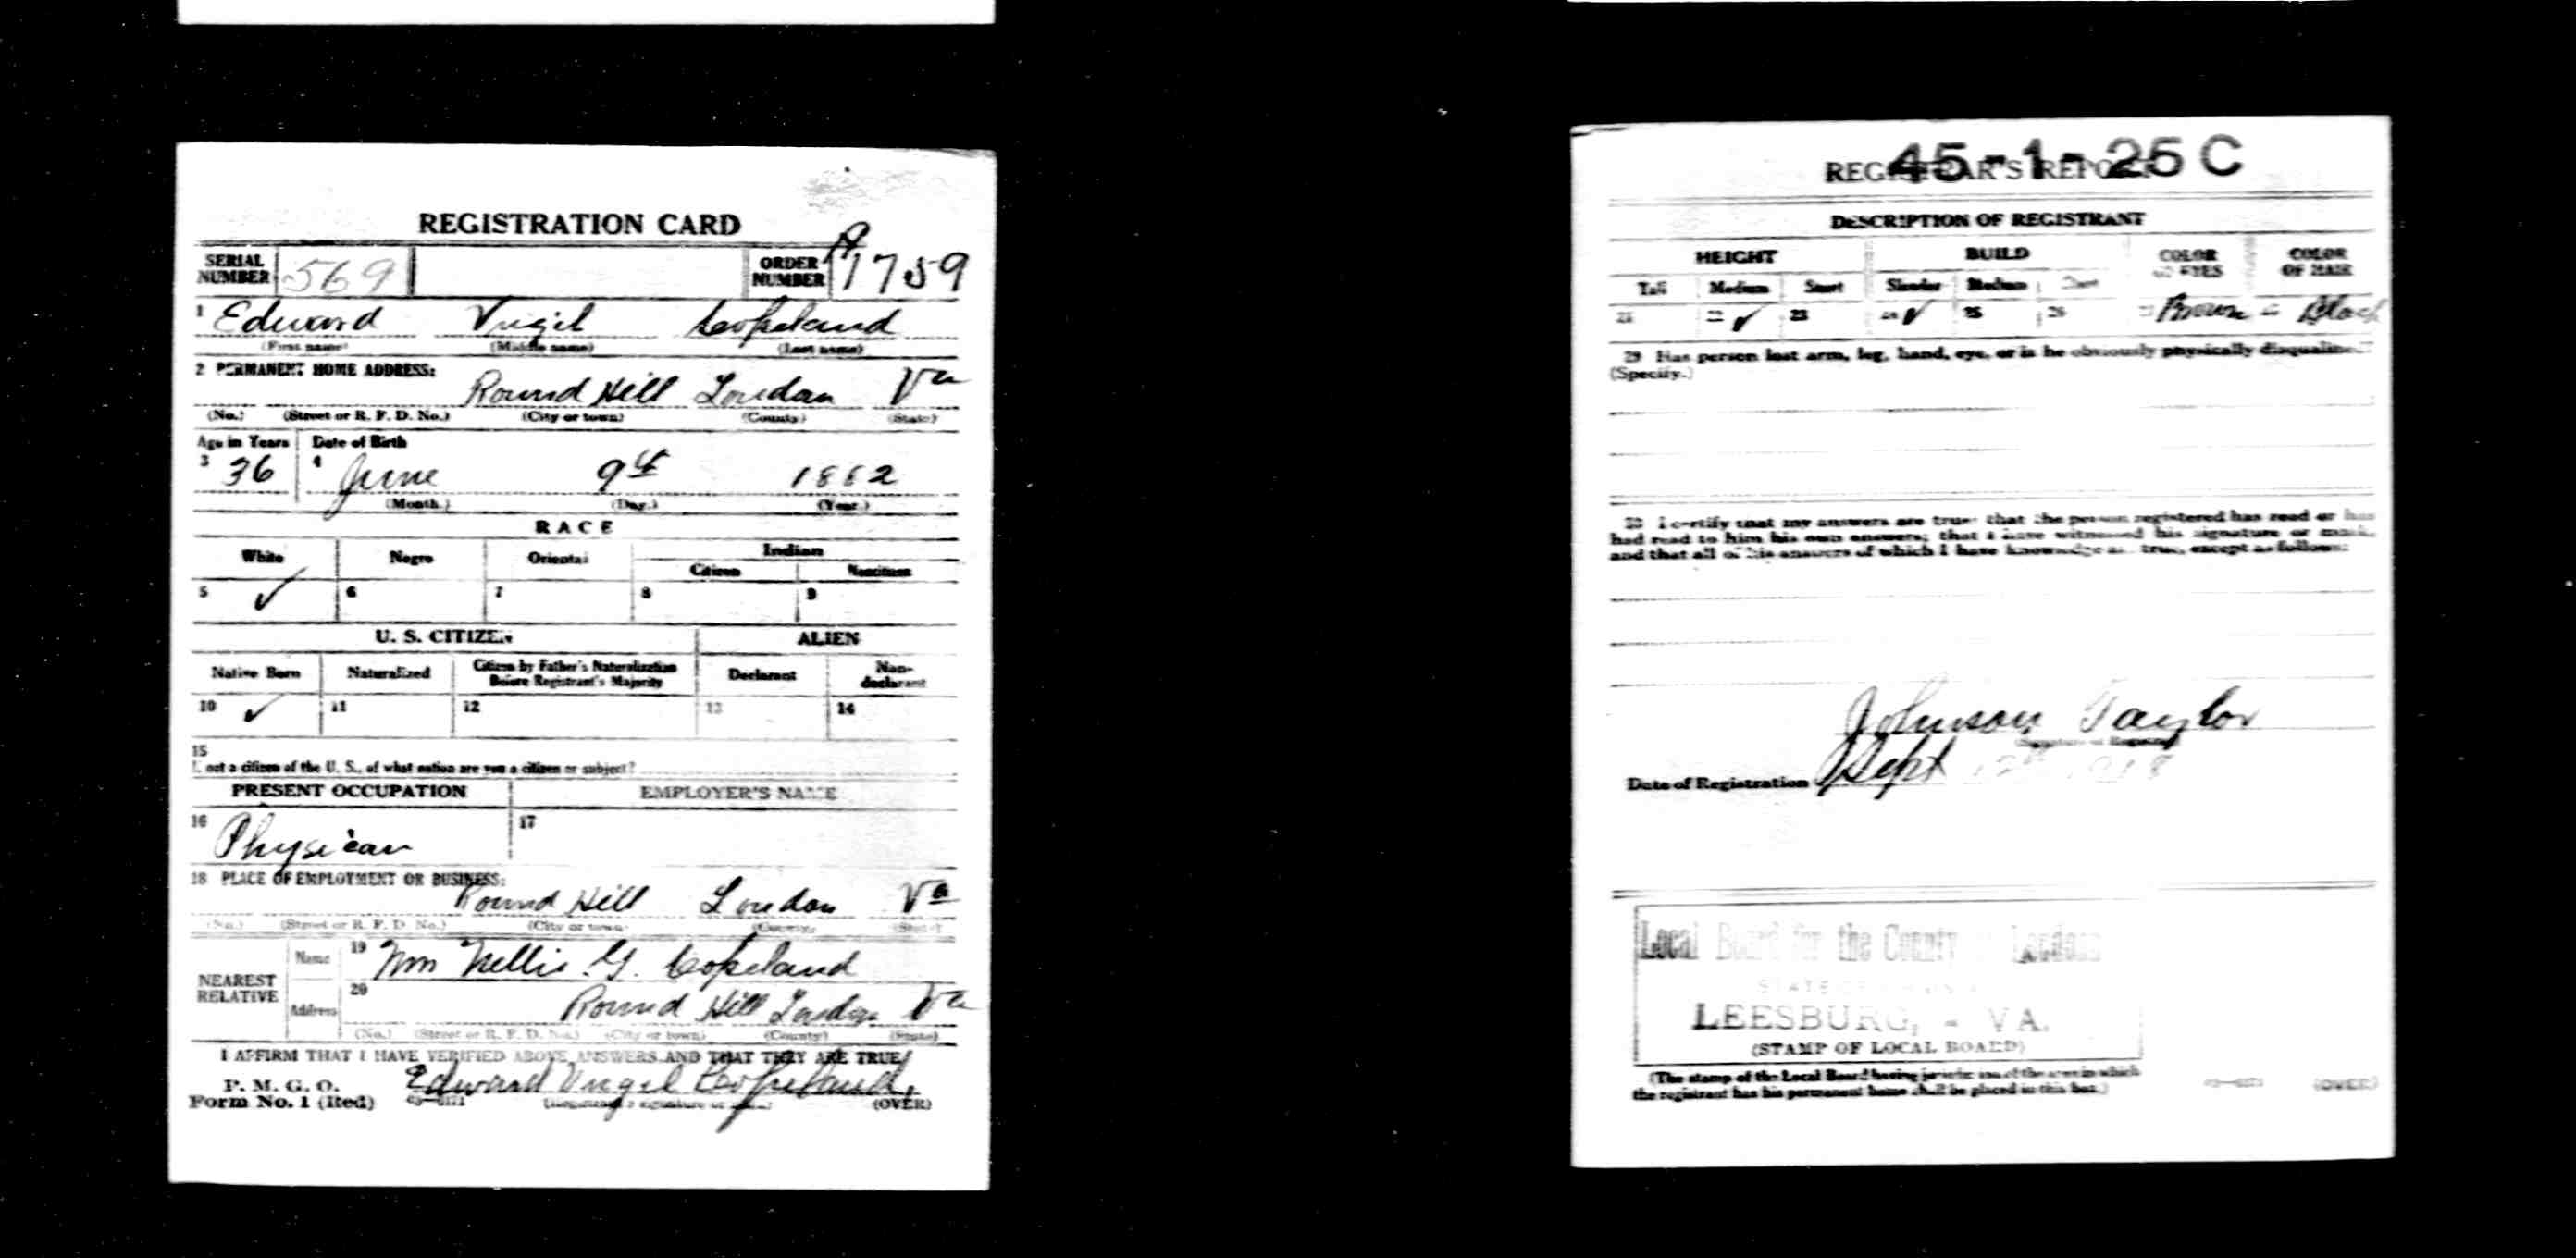 REGISTRATION CARD
SERIAL NUMBER 569 ORDER NUMBER A1759
1 Edward Virgil Copeland
(First name) (Middle name) (Last name)
2 PERMANENT HOME ADDRESS:
Round Hill Loudon Va
(No.) (Street or R. F. D. No.) (City or town) (County) (State)
Age in Years Date of Birth
3 36 4 June 9th 1882
(Month.) (Day.) (Year.)
RACE
White Negro Oriental Indian
Citizen Noncitizen
5 ✓ 6 7 8 9
U. S. CITIZEN ALIEN
Native Born Naturalized Citizen by Father's Naturalization Before Registrant's Majority Declarant Non-declarant
10 ✓ 11 12 13 14
15
If not a citizen of the U. S., of what nation are you a citizen or subject?
PRESENT OCCUPATION EMPLOYER'S NAME
16 Physician 17
18 PLACE OF EMPLOYMENT OR BUSINESS:
Round Hill Loudon Va
(No.) (Street or R. F. D. No.) (City or town) (County) (State)
NEAREST RELATIVE
Name 19 Nellie G. Copeland
Address 20 Round Hill Loudon Va
(No.) (Street or R. F. D. No.) (City or town) (County) (State)
I AFFIRM THAT I HAVE VERIFIED ABOVE ANSWERS AND THAT THEY ARE TRUE
P. M. G. O.
Form No. 1 (Red) Edward Virgil Copeland
(Registrant's signature or mark) (OVER)
45-1-25 C
REGISTRAR'S REPORT
DESCRIPTION OF REGISTRANT
HEIGHT BUILD COLOR OF EYES COLOR OF HAIR
Tall Medium Short Slender Medium Stout
21 22 ✓ 23 24 ✓ 25 26 27 Brown 28 Black
29 Has person lost arm, leg, hand, eye, or is he obviously physically disqualified?
(Specify.)
30 I certify that my answers are true; that the person registered has read or has
had read to him his own answers; that I have witnessed his signature or mark,
and that all of his answers of which I have knowledge are true, except as follows:
Johnson Taylor
(Signature of Registrar)
Date of Registration Sept 12th 1918
Local Board for the County of Loudoun
STATE OF VIRGINIA
LEESBURG, - VA.
(STAMP OF LOCAL BOARD)
(The stamp of the Local Board having jurisdiction of the area in which
the registrant has his permanent home shall be placed in this box.)
(OVER)